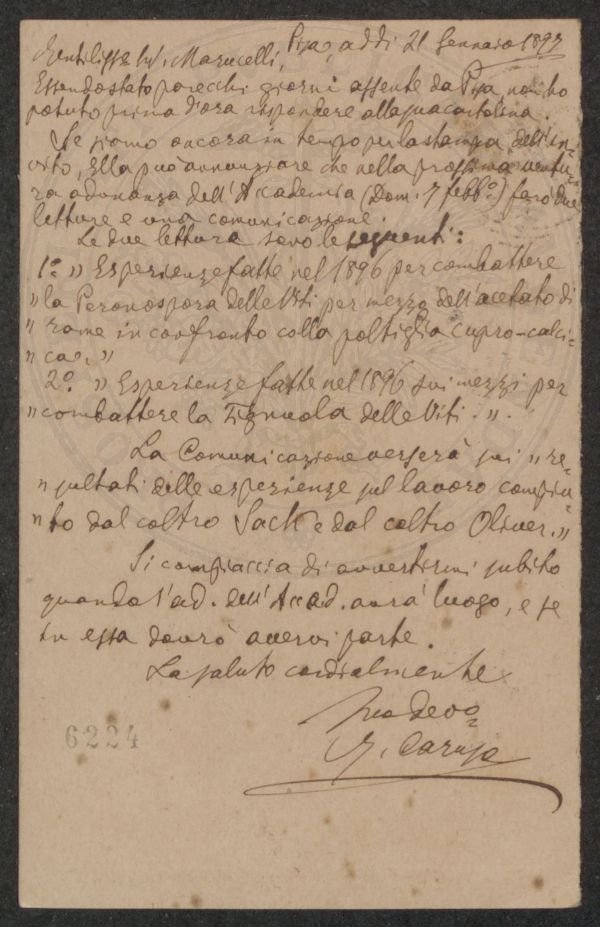 Pisa, addi 21 Gennaro 1897
Gentiliss. Sig. Marucelli,
Essendo stato parecchi giorni assente da Pisa, non ho
potuto prima d'ora rispondere alla sua cartolina.
Se siamo ancora in tempo per la stampa dell'in-
vito, Ella può annunziare che nella prossima ventu-
ra adunanza dell'Accademia (Dom. 7 febbo.) farò due
letture e una comunicazione.
Le due lettura sono le seguenti:
1a. „ Esperienze fatte nel 1896 per combattere
„ la Peronospora delle Viti per mezzo dell'acetato di
„ rame in confronto colla poltiglia cupro-calci-
„ ca. „
2a. „ Esperienze fatte nel 1896 sui mezzi per
„ combattere la Tignuola delle Viti. „.
La Comunicazione verserà sui „ re-
„ sultati delle esperienze sul lavoro compiu-
„ to dal coltro Sack e dal coltro Oliver. „
Si compiaccia di avvertirmi subito
quando l'ad. dell'Accad. avrà luogo, e se
in essa dovrò avervi parte.
La saluto cordialmente
Suo devo.
G. Caruso
6224